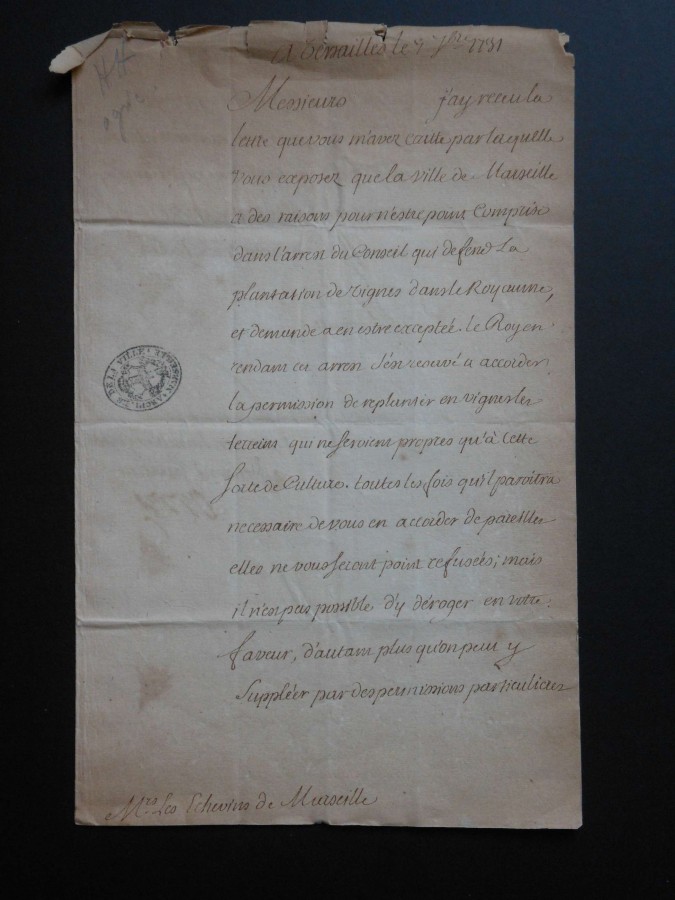 A Versailles le 9 7bre 1731
Messieurs j'ay receu la
lettre que vous m'avez ecritte par laquelle
vous exposez que la ville de Marseille
a des raisons pour n'estre point comprise
dans l'arrest du Conseil qui defend La
plantation de vignes dans le Royaume,
et demande a en estre exceptée. le Roy en
rendant cet arrest s'est reservé a accorder
la permission de replanter en vignes les
terreins qui ne seroient propres qu'à cette
sorte de Culture. toutes les fois qu'il paroitra
necessaire de vous en accorder de pareilles
elles ne vous seront point refusées; mais
il n'est pas possible d'y déroger en votre
faveur, d'autant plus qu'on peut y
Suppléer par des permissions particulieres
Mrs. Les Echevins de Marseille
DE LA VILLE